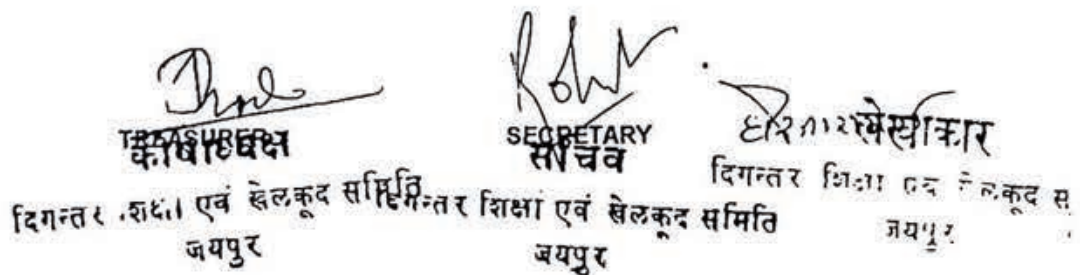 TREASURER
कोषाध्यक्ष
दिगन्तर शिक्षा एवं खेलकूद समिति
जयपुर
SECRETARY
सचिव
दिगन्तर शिक्षा एवं खेलकूद समिति
जयपुर
दिगन्तर शिक्षा एवं खेलकूद स
जयपुर